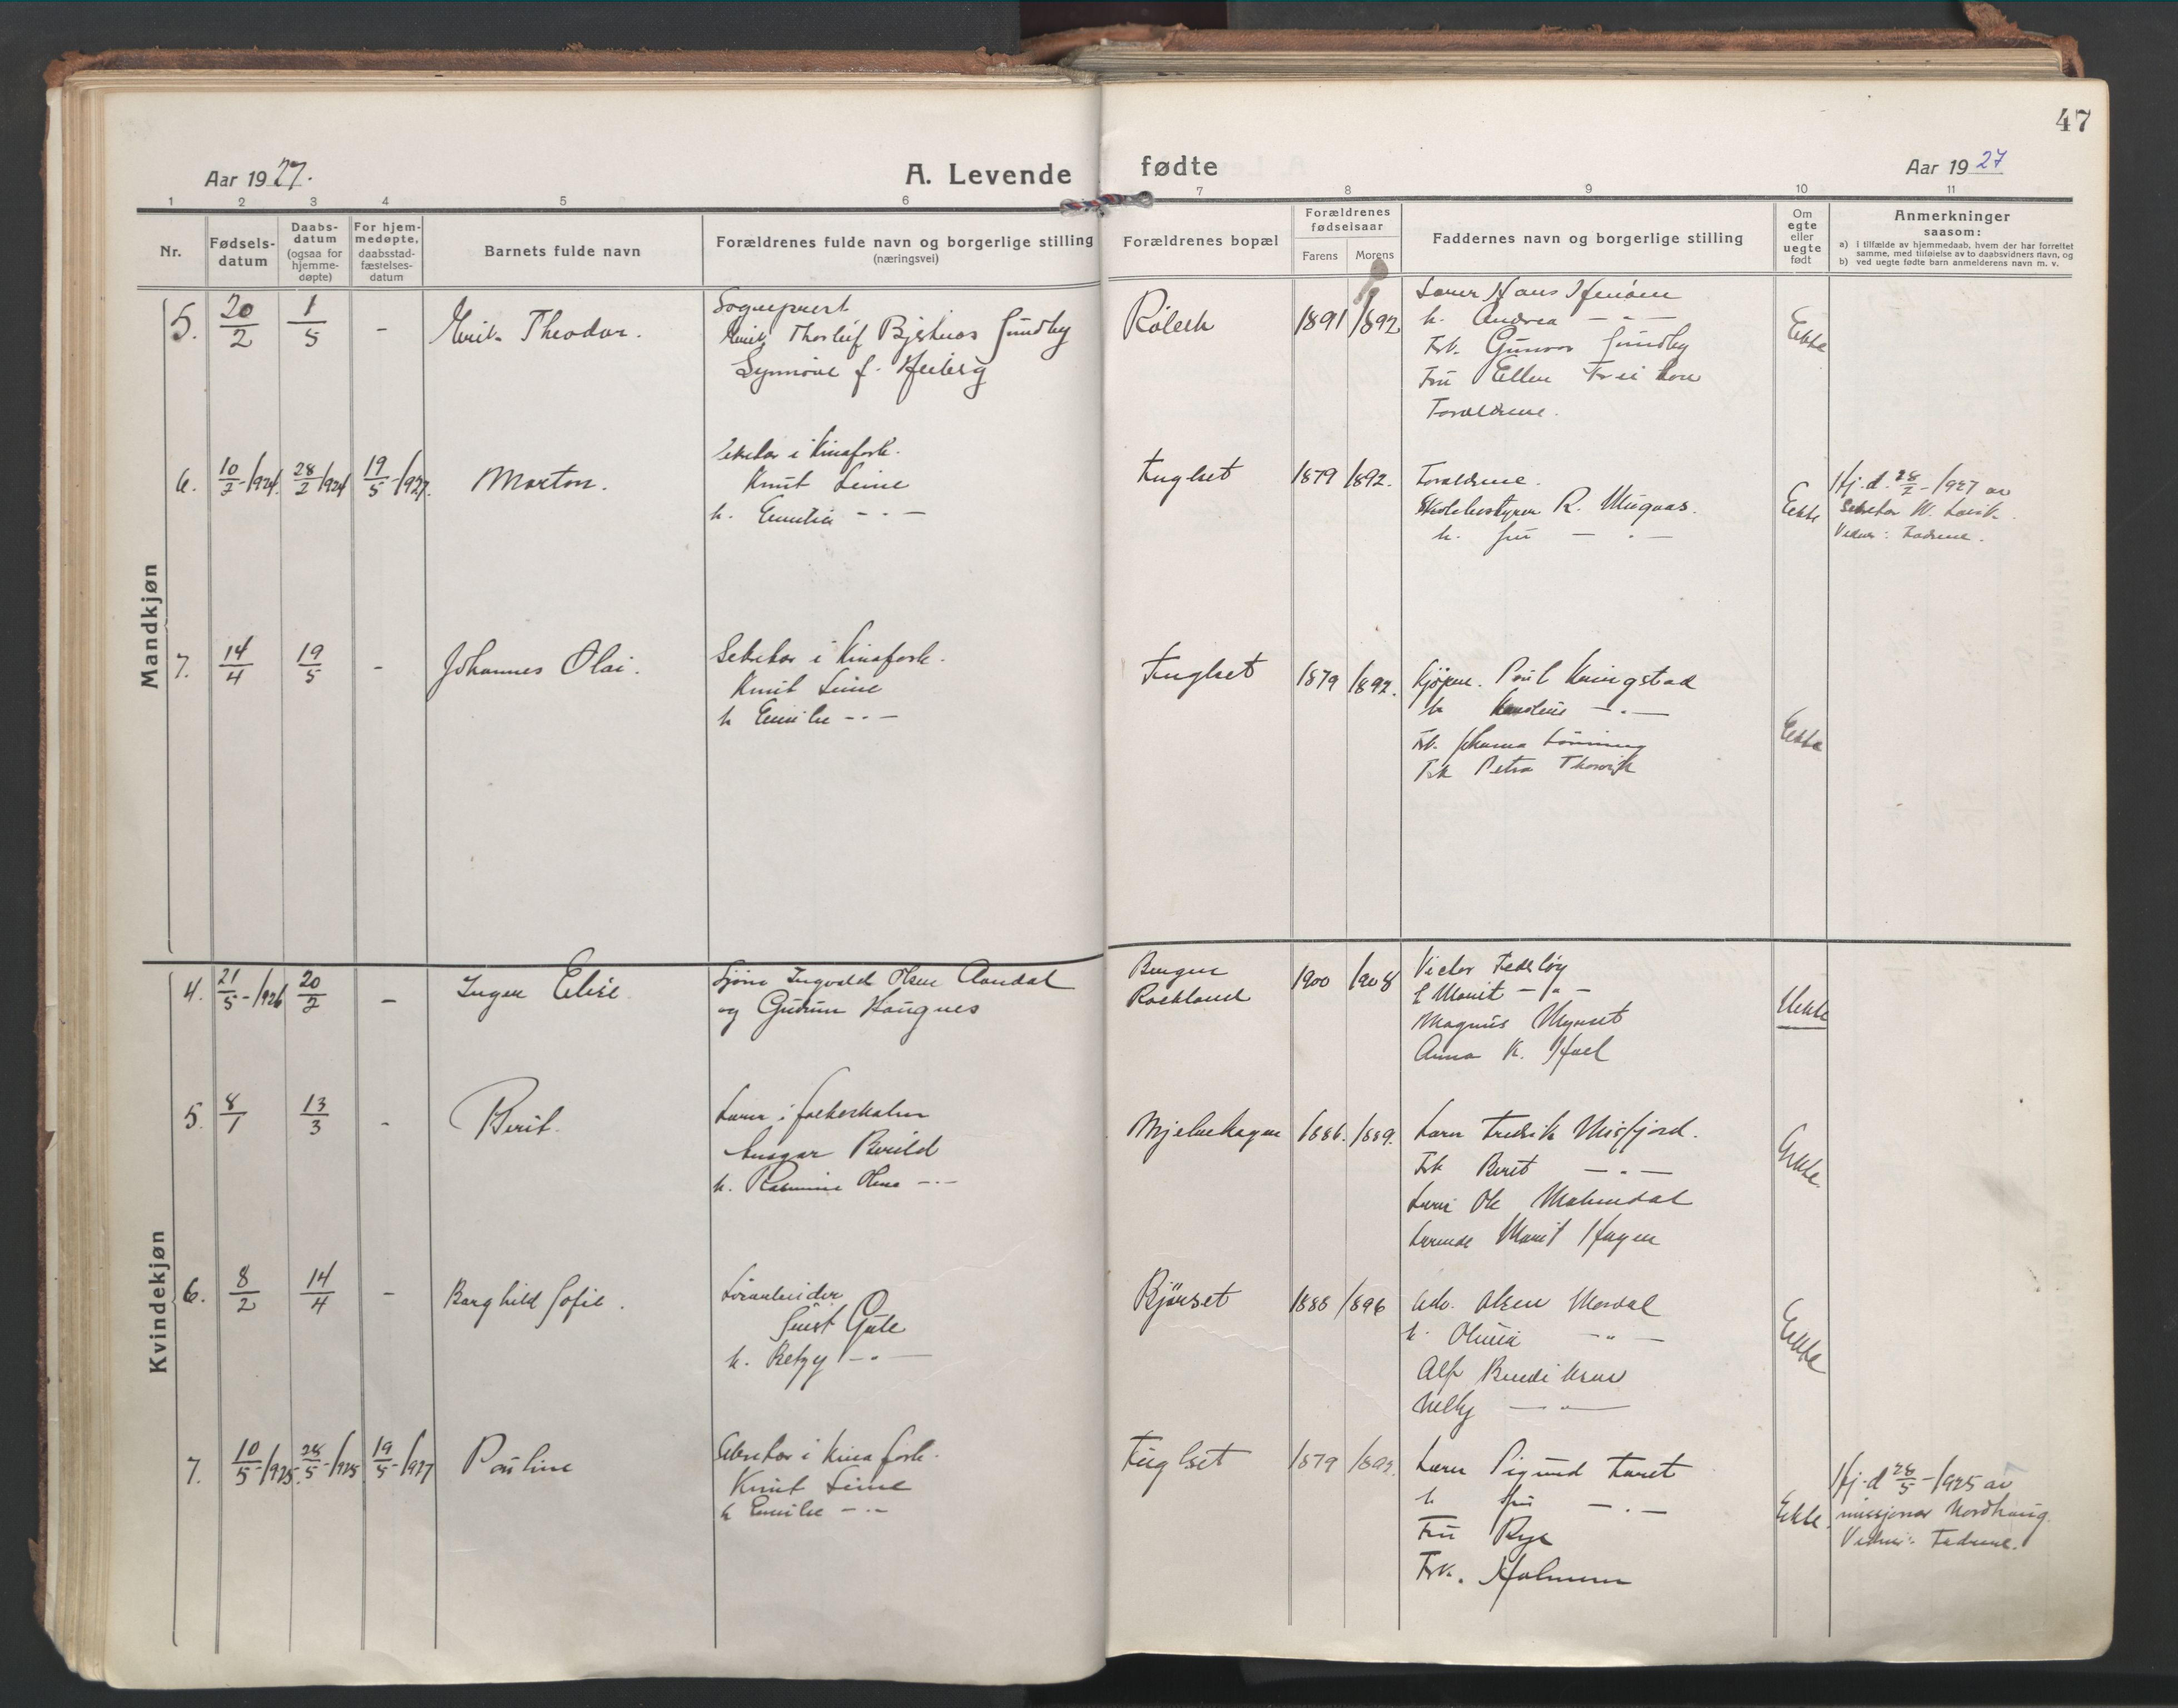 47
Aar 1927.
A. Levende fødte
Aar 1927
1 2 3 4 5 6 7 8 9 10 11
Nr.
Fødsels-
datum
Daabs-
datum
(ogsaa for
hjemme-
døpte)
For hjem-
medøpte,
daabsstad-
fæstelses-
datum
Barnets fulde navn
Forældrenes fulde navn og borgerlige stilling
(næringsvei)
Forældrenes bopæl
Forældrenes
fødselsaar
Farens
Morens
Faddernes navn og borgerlige stilling
Om
egte
eller
uegte
født
Anmerkninger
saasom:
a) i tilfælde av hjemmedaab, hvem der har forrettet
samme, med tilføielse av to daabsvidners navn, og
b) ved uegte fødte barn anmelderens navn m. v.
Mandkjøn
5. 20/2 1/5 - Theodor.
Sogneprest
1891 1892
h. Andrea - " -
Frk. Gunvor Sundby
Fru Ellen
Forældrene.
Ekte
6. 10/2-1924. 28/2 1924 19/5-1927. Morton.
Sekretær i Kinaforb.
Knut Leine
h. Emilie - " -
Fuglset 1879 1892.
Forældrene.
Skolebestyrer R.
h. fru - " -
Ekte
Hj. d. 28/2-1927 av
Sekretær
Vidner: Fadrene.
7. 14/4 19/5 - Johannes Olai.
Sekretær i Kinaforb.
Knut Leine
h Emilie - " -
Fuglset 1879 1892.
Kjøpm. Paul Kringstad
h - " -
Frk. Johanna Lønning
Frk Petra Thorvik
Ekte
Kvindekjøn
4. 21/5-1926 20/2 - Inger Elise
Ingvald Olsen Aandal
og Gudrun Haugnes
Bergen
Røkland
1900 1908
Victor
E Marit - " -
Magnus Myrset
Anna K. Hoel
Uekte
5. 8/1 13/3 - Berit.
Lærer i folkeskolen
Ansgar Berild
h. Rasmine Olene - " -
1886. 1889.
Lærer Fredrik Misfjord.
Frk Berit - " -
Lærer Ole Malmedal
Lærerinde Marit Hagen
Ekte
6. 8/2 14/4 - Borghild Sofie.
h. Betzy - " -
Bjørset 1888 1896
Olsen Mordal
h. - " -
Alf Bendiksen
Nelly - " -
Ekte
7. 10/5-1925. 28/5-1925 19/5-1927 Pauline
Sekretær i Kinaforb.
Knut Leine
h Emilie - " -
Fuglset 1879 1892.
Lærer Sigurd
h fru - " -
Fru Rye
Frk.
Ekte.
Hj. d 28/5-1925 av
missjonær Nordhaug.
Vidner: Fadrene.